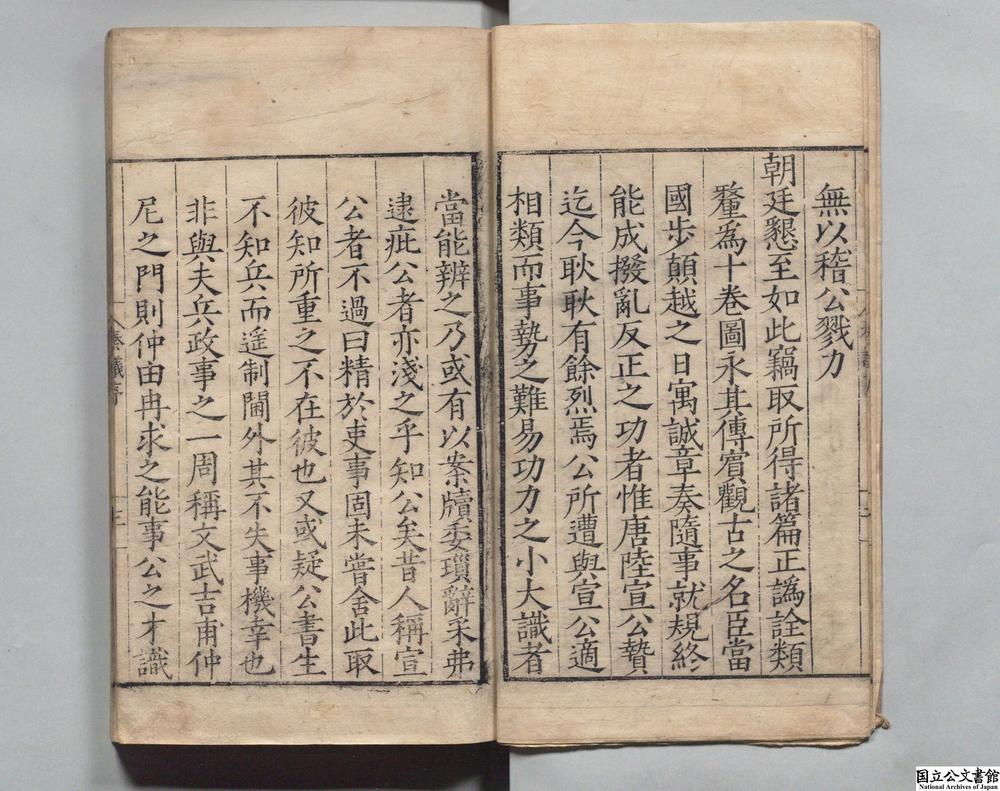 無以稽公戮力
朝廷懇至如此竊取所得諸篇正譌詮類
釐為十卷圖永其傳賔觀古之名臣當
國步顛越之日寓誠章奏隨事就規終
能成撥亂反正之功者惟唐陸宣公贄
迄今耿耿有餘烈焉公所遭與宣公適
相類而事勢之難易功力之小大識者
當能辨之乃或有以案牘委瑣辭采弗
逮疵公者亦淺之乎知公矣昔人稱宣
公者不過曰精於吏事固未嘗舍此取
彼知所重之不在彼也又或疑公書生
不知兵而遥制閫外其不失事機幸也
非與夫兵政事之一周稱文武吉甫仲
尼之門則仲由冉求之能事公之才識
奏議序
三
国立公文書館
National Archives of Japan